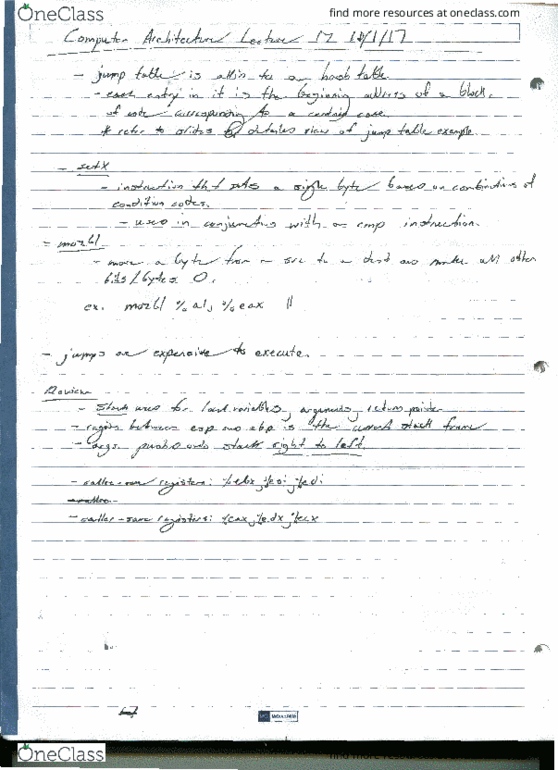 OneClass
find more resources at oneclass.com
Computer Architecture Lecture 12 10/1/17
- jump table is akin to a hash table
- each entry in it is the beginning address of a block
of code corresponding to a certain case.
* refer to slides detailed view of jump table example.
- setX
- instruction that sets a single byte based on combinations of
condition codes.
- used in conjunction with a cmp instruction.
- movzbl
- moves a byte from a src to a dest and makes all other
bits/bytes 0.
ex. movzbl %al, %eax
- jumps are expensive to execute.
Review
- Stack used for local variables, arguments, return pointer
- region between esp and ebp is the current stack frame
- args. pushed onto stack right to left.
- callee-save registers: %ebx, %esi, %edi
- caller-save registers: %eax, %edx, %ecx
OneClass
find more resources at oneclass.com